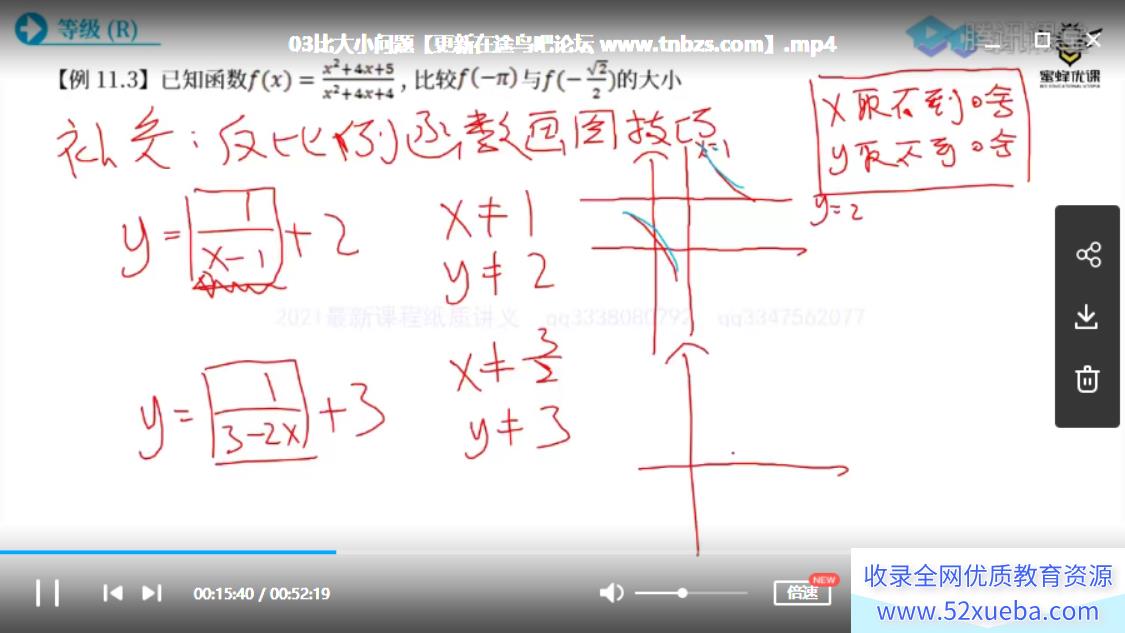 等级 (R)
腾讯课堂
03比大小问题【更新在途鸟吧论坛 www.tnbzs.com】.mp4
蜜蜂优课
【例 11.3】已知函数f(x) = \frac{x²+4x+5}{x²+4x+4}, 比较f(−π)与f(−\frac{√2}{2})的大小
补充：反比例函数画图技巧
x取不到啥
y取不到啥
x=1
y=2
y = \frac{1}{x-1} + 2
x ≠ 1
y ≠ 2
2021最新课程纸质讲义 qq3338080792 qq3347562077
y = \frac{1}{3-2x} + 3
x ≠ \frac{3}{2}
y ≠ 3
00:15:40 / 00:52:19
倍速
NEW
收录全网优质教育资源
www.52xueba.com